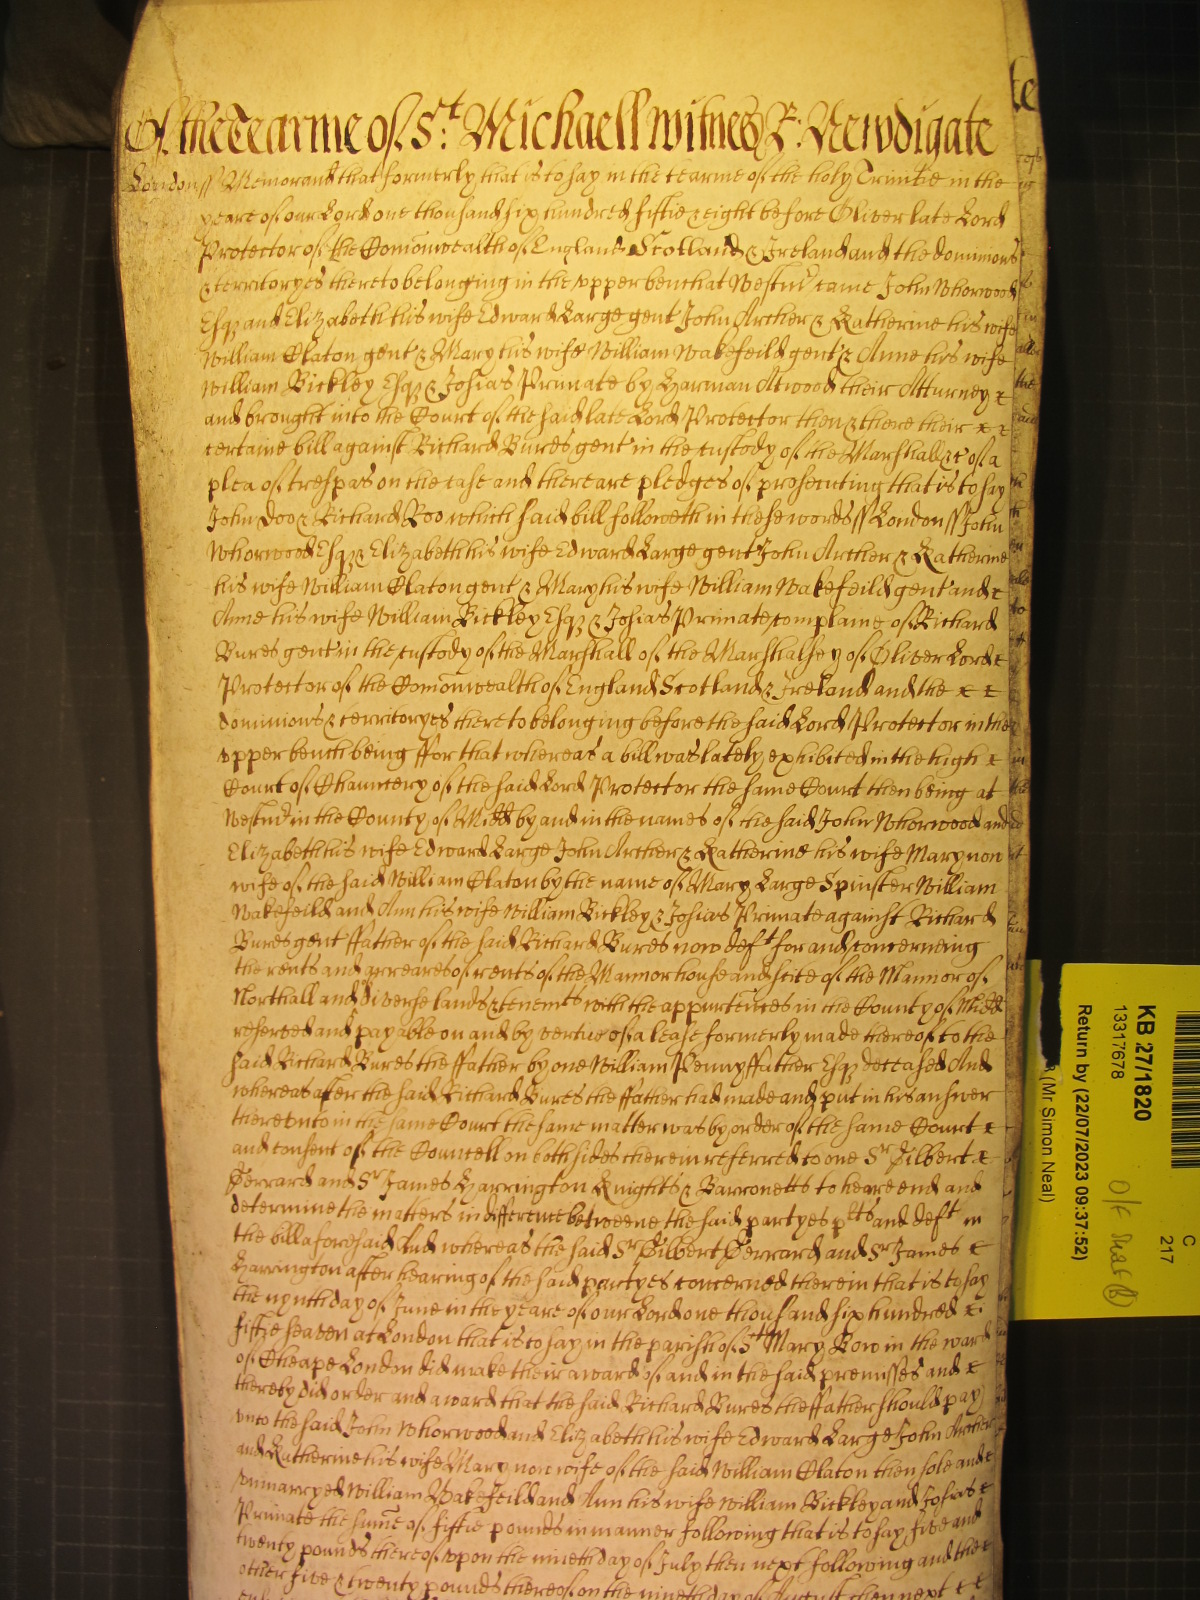 Of the Tearme of St. Michaell witnes R: Newdigate
London ss Memorand that formerly that is to say in the tearme of the holy Trinitie in the
yeare of our Lord one thousand six hundred fiftie & eight before Oliver late Lord
Protector of the Comonwealth of England Scotland & Ireland and the dominions
& territoryes thereto belonging in the upper bench at Westmr came John Whorwood
Esqr and Elizabeth his wife Edward Large gent John Archer & Katherine his wife
William Claton gent & Mary his wife William Wakefeild gent & Anne his wife
William Bickley Esqr & Josias Primate by Harman Atwood their Atturney
and brought into the Court of the said late Lord Protector then & there their
certaine bill against Richard Bures gent in the custody of the Marshall &c of a
plea of trespas on the case and there are pledges of prosecuting that is to say
John Doo & Richard Roo which said bill followeth in these words ss London ss John
Whorwood Esqr & Elizabeth his wife Edward Large gent John Archer & Katherine
his wife William Claton gent & Mary his wife William Wakefeild gent and
Anne his wife William Bickley Esqr & Josias Primate complaine of Richard
Bures gent in the custody of the Marshall of the Marshalsey of Oliver Lord
Protector of the Comonwealth of England Scotland & Ireland and the
dominions & territoryes thereto belonging before the said Lord Protector in the
upper bench being ffor that whereas a bill was lately exhibited in the high
Court of Chauncery of the said Lord Protector the same Court then being at
Westmr in the County of Midd by and in the names of the said John Whorwood and
Elizabeth his wife Edward Large John Archer & Katherine his wife Mary now
wife of the said William Claton by the name of Mary Large Spinster William
Wakefeild and Ann his wife William Bickley & Josias Primate against Richard
Bures gent ffather of the said Richard Bures now deft for and concerneing
the rents and arreares of rents of the Mannor house and scite of the Mannor of
Northall and diverse lands & tenemts with the appurtences in the County of Midd
reserved and payable on and by vertue of a lease formerly made thereof to the
said Richard Bures the ffather by one William Pennyffather Esqr deceased And
whereas after the said Richard Bures the ffather had made and put in his answer
thereunto in the same Court the same matter was by order of the same Court
and consent of the Councell on both sides therein referred to one Sr Gilbert
Gerrard and Sr James Harrington Knights & Barronetts to heare end and
determine the matters in difference betweene the said partyes plts and deft in
the bill aforesaid And whereas the said Sr Gilbert Gerrard and Sr James
Harrington after hearing of the said partyes concerned therein that is to say
the nynth day of June in the yeare of our Lord one thousand six hundred
fiftie seaven at London that is to say in the parish of St Mary Bow in the ward
of Cheape London did make their award of and in the said premisses and
thereby did order and award that the said Richard Bures the ffather should pay
unto the said John Whorwood and Elizabeth his wife Edward Large John Archer
and Katherine his wife Mary now wife of the said William Claton then sole and
unmarryed William Wakefeild and Ann his wife William Bickley and Josias
Primate the sume of fiftie pounds in manner following that is to say five and
twenty pounds thereof upon the nineth day of July then next following and the
other five & twenty pounds thereof on the nineth day of August then next
KB 27/1820
13317678
Return by (22/07/2023 09:37:52)
(Mr Simon Neal)
C
217